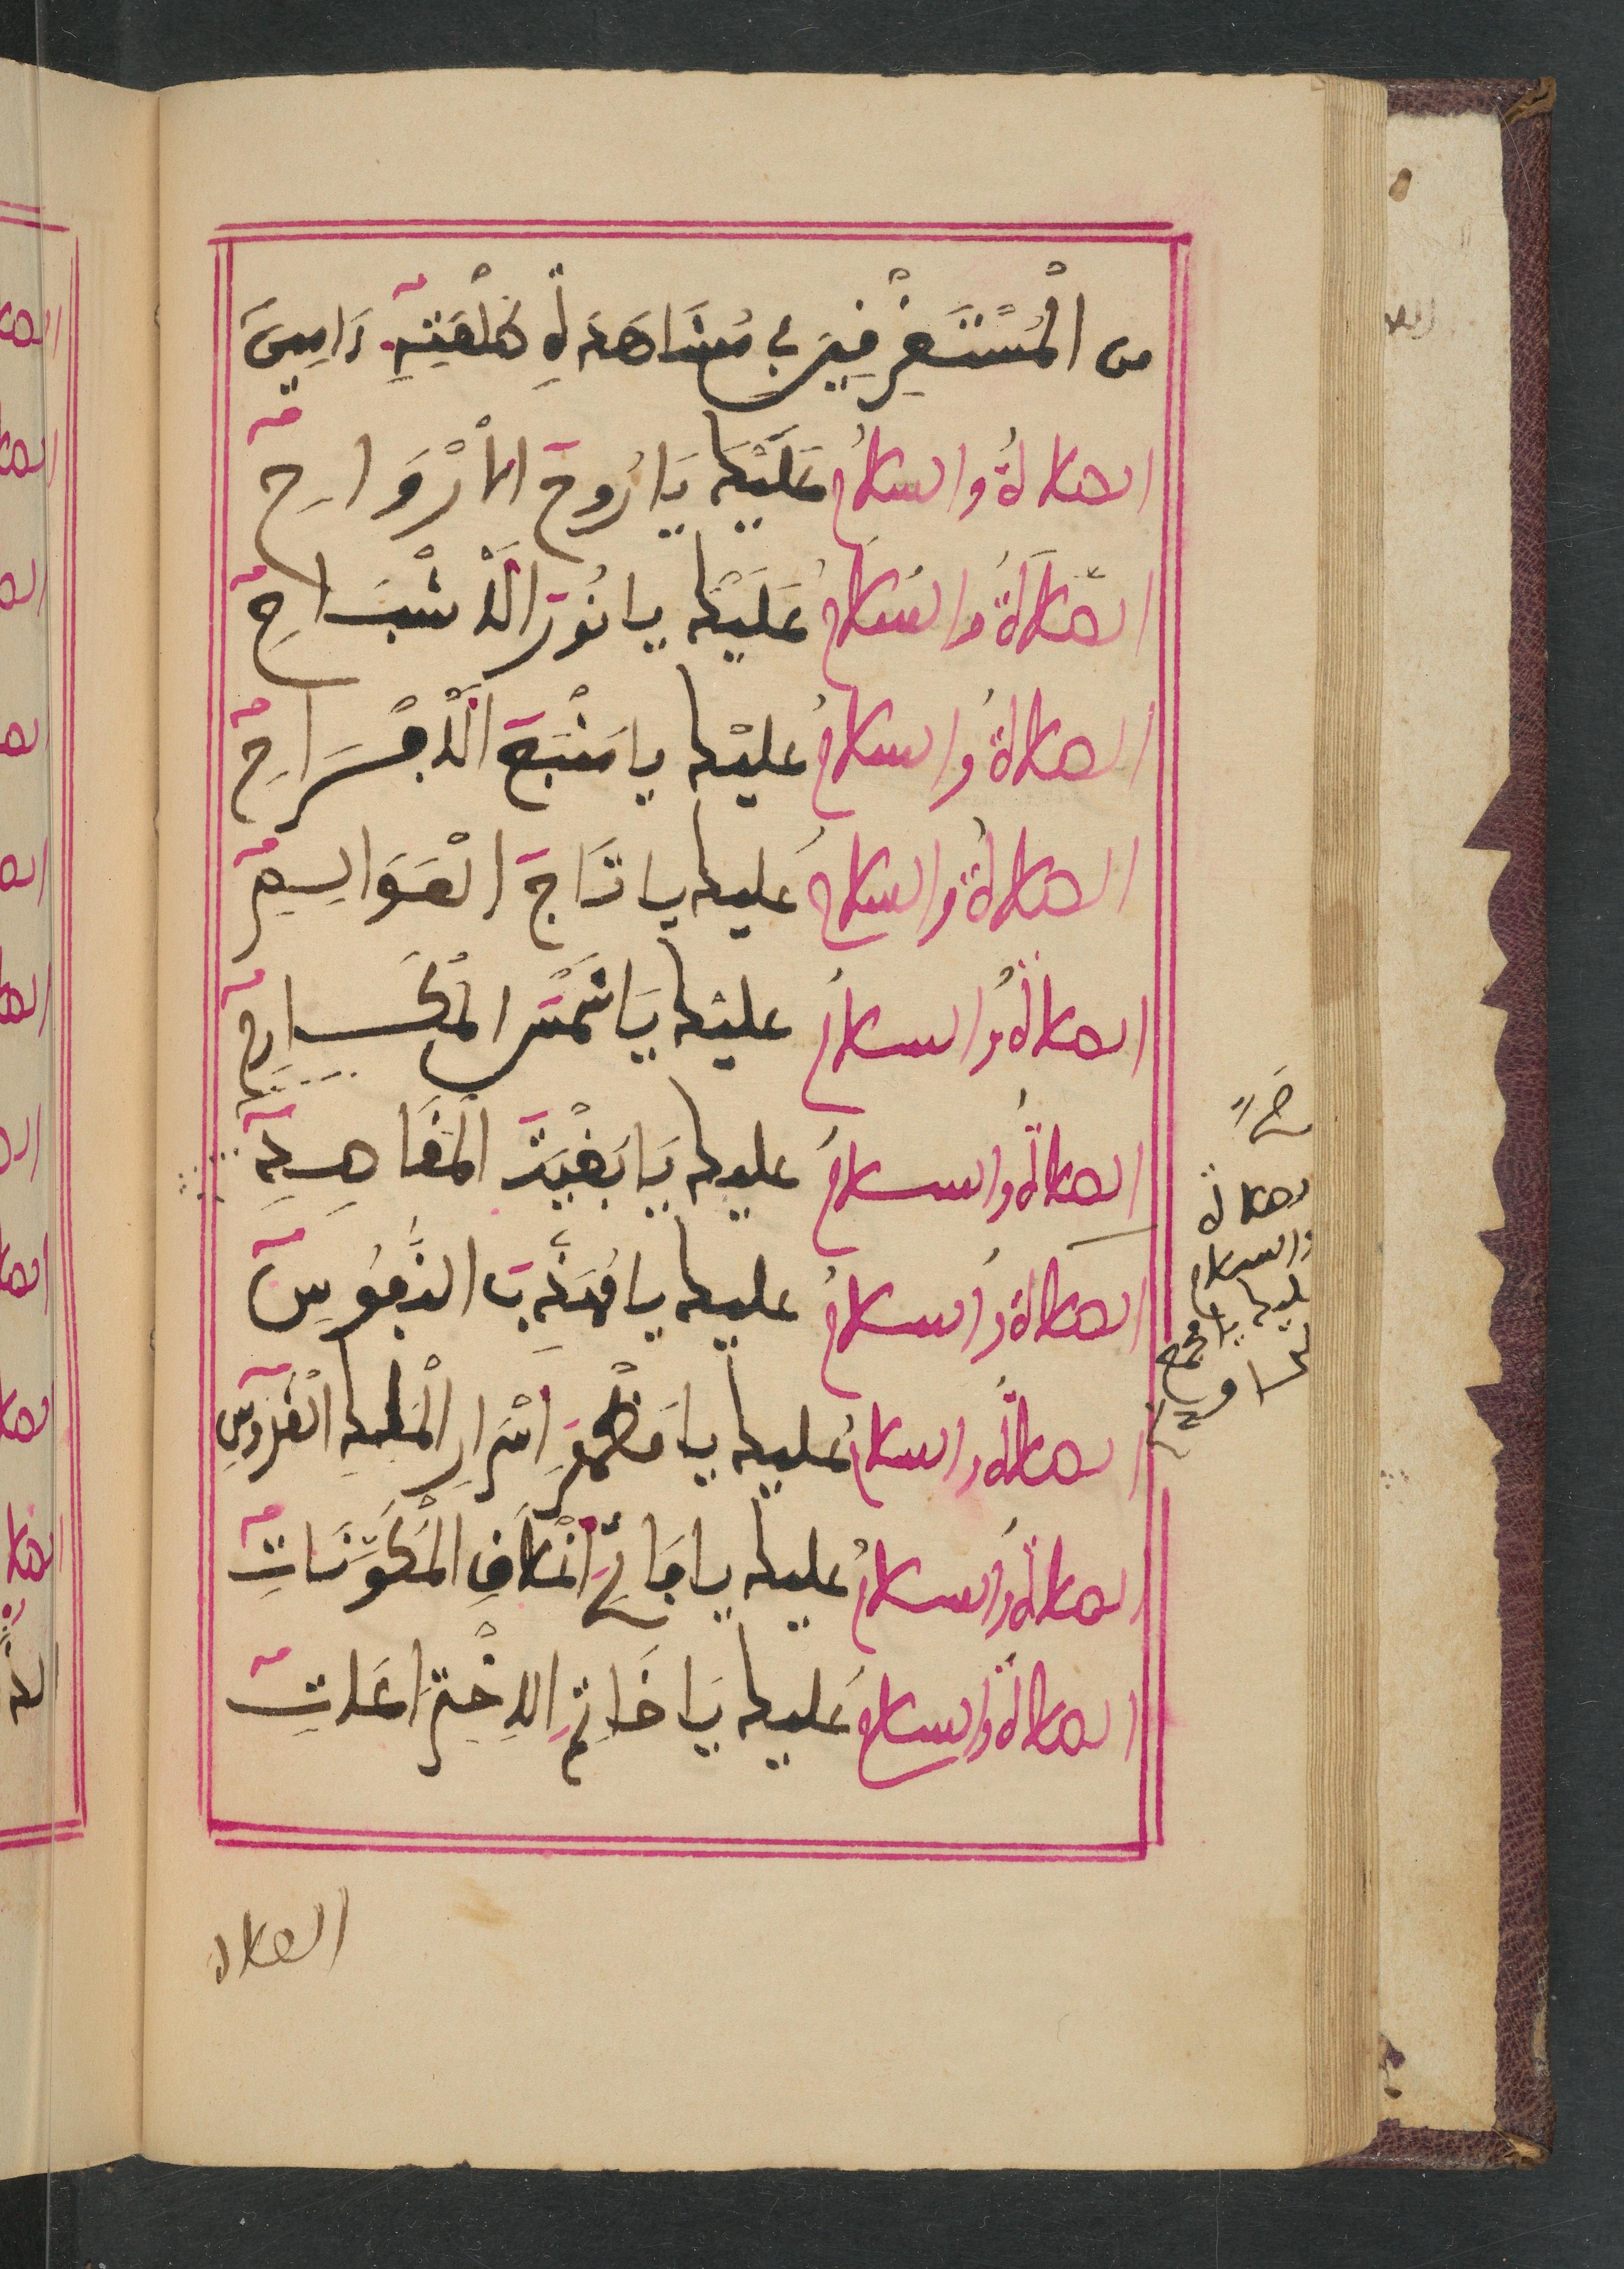 من الْمُسْتَغْرِفِينَ في مُشَاهَدَةِ طَلْعَتِهِ ءَامِينَ
الصلاةُ والسلامُ عَلَيْكَ يَا رُوحَ الأَرْوَاحِ
الصَّلاةُ والسَّلامُ عَلَيْكَ يا نُورَ الْأَشْبَاحِ
الصلاةُ والسلامُ عليْكَ يا مَنْبَعَ الْأَفْرَاحِ
الصلاةُ والسلامُ عَليك يا تَاجَ الْعَوَاسِمِ
الصلاةُ والسلامُ عليْكَ يَا شَمْسَ الْمَكَارِمِ
الصلاةُ والسلامُ عليك يَا بُغْيَةَ الْمَقَاصِدِ
الصلاةُ والسلامُ عليك يا مُهَذِّبَ النُّفُوسِ
الصلاةُ والسلامُ عليك يا مَظْهَرَ أَسْرَارِ الْمَلِكِ الْقُدُّوسِ
الصلاةُ والسلامُ عليك يا فَاتِحَ أَغْلَاقِ الْمُكَوَّنَاتِ
الصلاةُ والسلامُ عَليك يَا خَاتِمَ الِاخْتِرَاعَاتِ
الصلاة
صح
الصلاة
والسلام
عليك يا مجمع